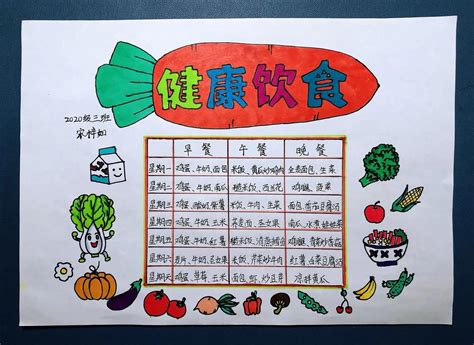 健康饮食
2020级三班
宋梓如
早餐 午餐 晚餐
星期一 鸡蛋、牛奶、面包 米饭、黄瓜炒鸡肉 全麦面包、生菜
星期二 鸡蛋、牛奶、南瓜 糙米饭、西兰花 鸡腿、菠菜
星期三 鸡蛋、酸奶、 米饭、牛肉、生菜 面包、番茄豆腐汤
星期四 鸡蛋、牛奶、玉米 荞麦面、圣女果 南瓜、水煮娃娃菜
星期五 鸡蛋、牛奶、 糙米饭、清蒸 鸡腿、青菜炒香菇
星期六 牛奶、圣女果 米饭、芹菜炒牛肉 红薯、白菜豆腐汤
星期天 鸡蛋、草莓、玉米 面包、虾、炒豆芽 凉拌黄瓜